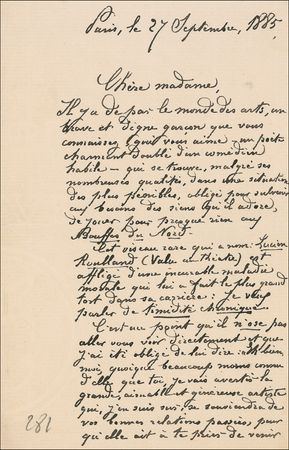 Paris, le 27 Septembre, 1885.
Chère madame,
Il y a de par le monde des arts, un
brave et digne garçon que vous
connaissez & qui vous aime un poète
charmant doublé d'un comédien
habile – qui se trouve, malgré ses
nombreuses qualités, dans une situation
des plus pénibles, obligé pour subvenir
aux besoins des siens qu'il adore,
de jouer pour presque rien aux
Bouffes du Nord.
Cet oiseau rare qui a nom: Lucien
(Valu au théâtre) est
affligé d'une incurable maladie
morale qui lui a fait le plus grand
tort dans sa carrière: je veux
parler de timidité chronique.
C'est au point qu'il n'ose pas
aller vous voir directement et que
j'ai été obligé de lui dire: eh bien,
moi, quoique beaucoup moins connu
d'elle que toi, je vais avertir la
grande, aimable et généreuse artiste
qui, j'en suis sur, se souviendra de
vos bonnes relations passées, pour
qu'elle ait à te prier de venir
281